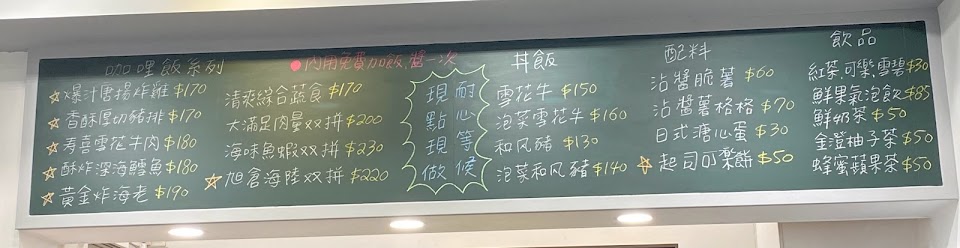 咖哩飯系列
●內用免費加飯,醬一次
☆爆汁唐揚炸雞 $170
☆香酥厚切豬排 $170
☆壽喜雪花牛肉 $180
☆酥炸深海鱈魚 $180
☆黃金炸海老 $190
清爽綜合蔬食 $170
大滿足肉量双拼 $200
海味魚蝦双拼 $230
☆旭倉海陸双拼 $220
現點現做
耐心等候
丼飯
雪花牛 $150
泡菜雪花牛 $160
和風豬 $130
泡菜和风豬 $140
配料
沾醬脆薯 $60
沾醬薯格格 $70
日式溏心蛋 $30
☆起司可樂餅 $50
飲品
紅茶,可樂,雪碧 $30
鮮果氣泡飲 $85
鮮奶茶 $50
金澄柚子茶 $50
蜂蜜蘋果茶 $50